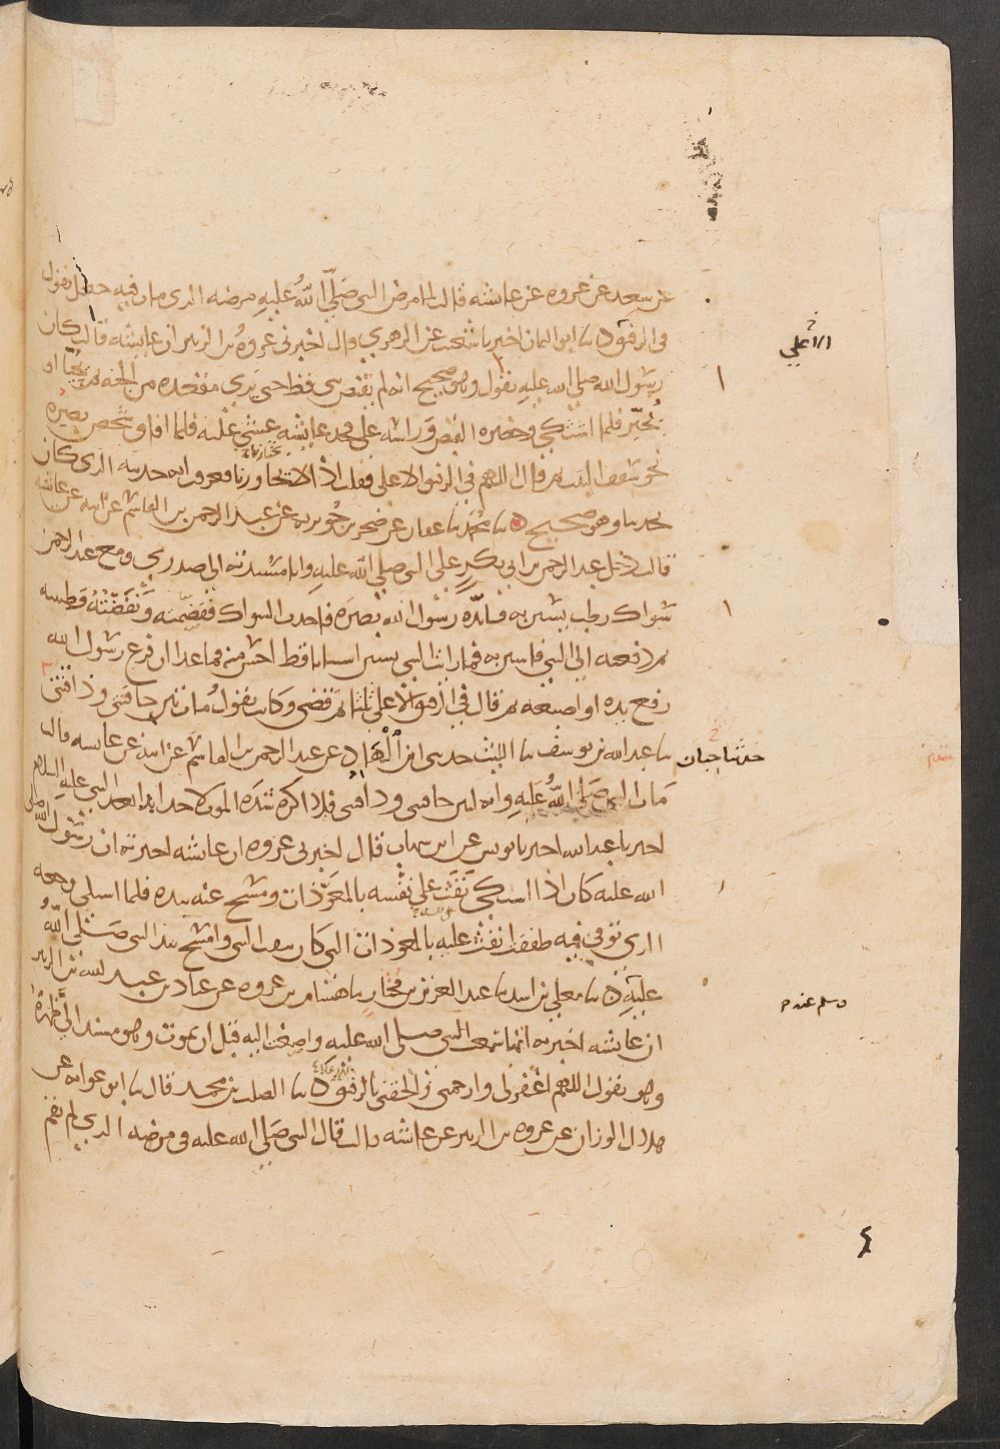 عن سعد عن عروه عن عايشه قالت لما مرض النبي صَلَّى اللَّهُ عليهِ مرضه الذي مات فيه جعل يقول
في الرفيق ه نا ابو اليمان اخبرنا شعيب عن الزهري قال اخبرني عروهُ بن الزبير ان عايشه قالت كان
رسول الله صلى الله عليهِ يقول وهو صحيح انه لم يقبض نبي قط حتى يَرى مقعده من الجنه ثم يُحيّا او
يُخيّر فلما اشتكى وحضره القبض وراسه على فخد عايشه غشي عليه فلما افاق شَخص بصرُه
نحو سقف البيت ثم قال اللهم في الرفيق الاعلى فقلت اذًا لا يختارنا فعرفت انه حديثه الذي كان
يحدثنا وهو صحيح ه نا محمد نا عفان عن صخر بن جُويريه عن عبد الرحمن بن القاسم عن ابيه عن عايشه
قالت دخل عبد الرحمن بن ابي بكرٍ على النبي صلى الله عليهِ وانا مسندته الى صدري ومع عبد الرحمن
سواك رطب يستن به فابَدَّه رسول الله بصرَه فاخدت السواك فقضمته ونفضته وطيبته
ثم دفعه الى النبي فاستن به فما رايت النبي يستن استنانا قط احسن منه فما عدا ان فرغ رسول الله
رفع يده او اصبعه ثم قال في الرفيق الاعلى ثلثا ثم قضى وكانت تقولُ مات بين حاقنتي وذاقنتي
حدثنا حبان
نا عبد الله بن يوسف نا الليث حدثني ابن الْهَادِ عن عبد الرحمن بن القاسم عن ابيه عن عايشه قالت
مَات النبي صَلى اللَّهُ عَليهِ وانه لبين حاقنتي وذاقنتي فلا اكره شدَه الموت لاحد ابدا بعد النبي عليه السلام
اخبرنا عبد الله اخبرنا يونس عن ابن شهاب قال اخبرني عروه ان عايشه اخبرته ان رسول الله صلى
الله عليه كان اذا اشتكى نَفَث على نفسه بالمعَوّذات ومسح عنه بيده فلما اشتكى وجعه
الذي توفي فيه طفقت انفث عليه بالمعوذات التي كان ينفث وامسح بيد النبي صَلَّى اللَّهُ
عليهِ ه نا معلى بن اسد نا عبد العزيز بن مختار نا هشام بن عروه عن عباد بن عبد الله بن الزبير
وسلم عنده
ان عايشه اخبرته انها سمعت النبي صلى الله عليه واصغت اليه قبل ان يموت وهو مسند الىّ ظهرَهُ
وهو يقول اللهم اغفر لي وارحمني والحقني بالرفيق ه نا الصلت بن محمد قال نا ابو عوانه عن
هلال الوزان عن عروه بن الزبير عن عايشه قالت قال النبي صَلى الله عليه في مرضه الذي لم يقم